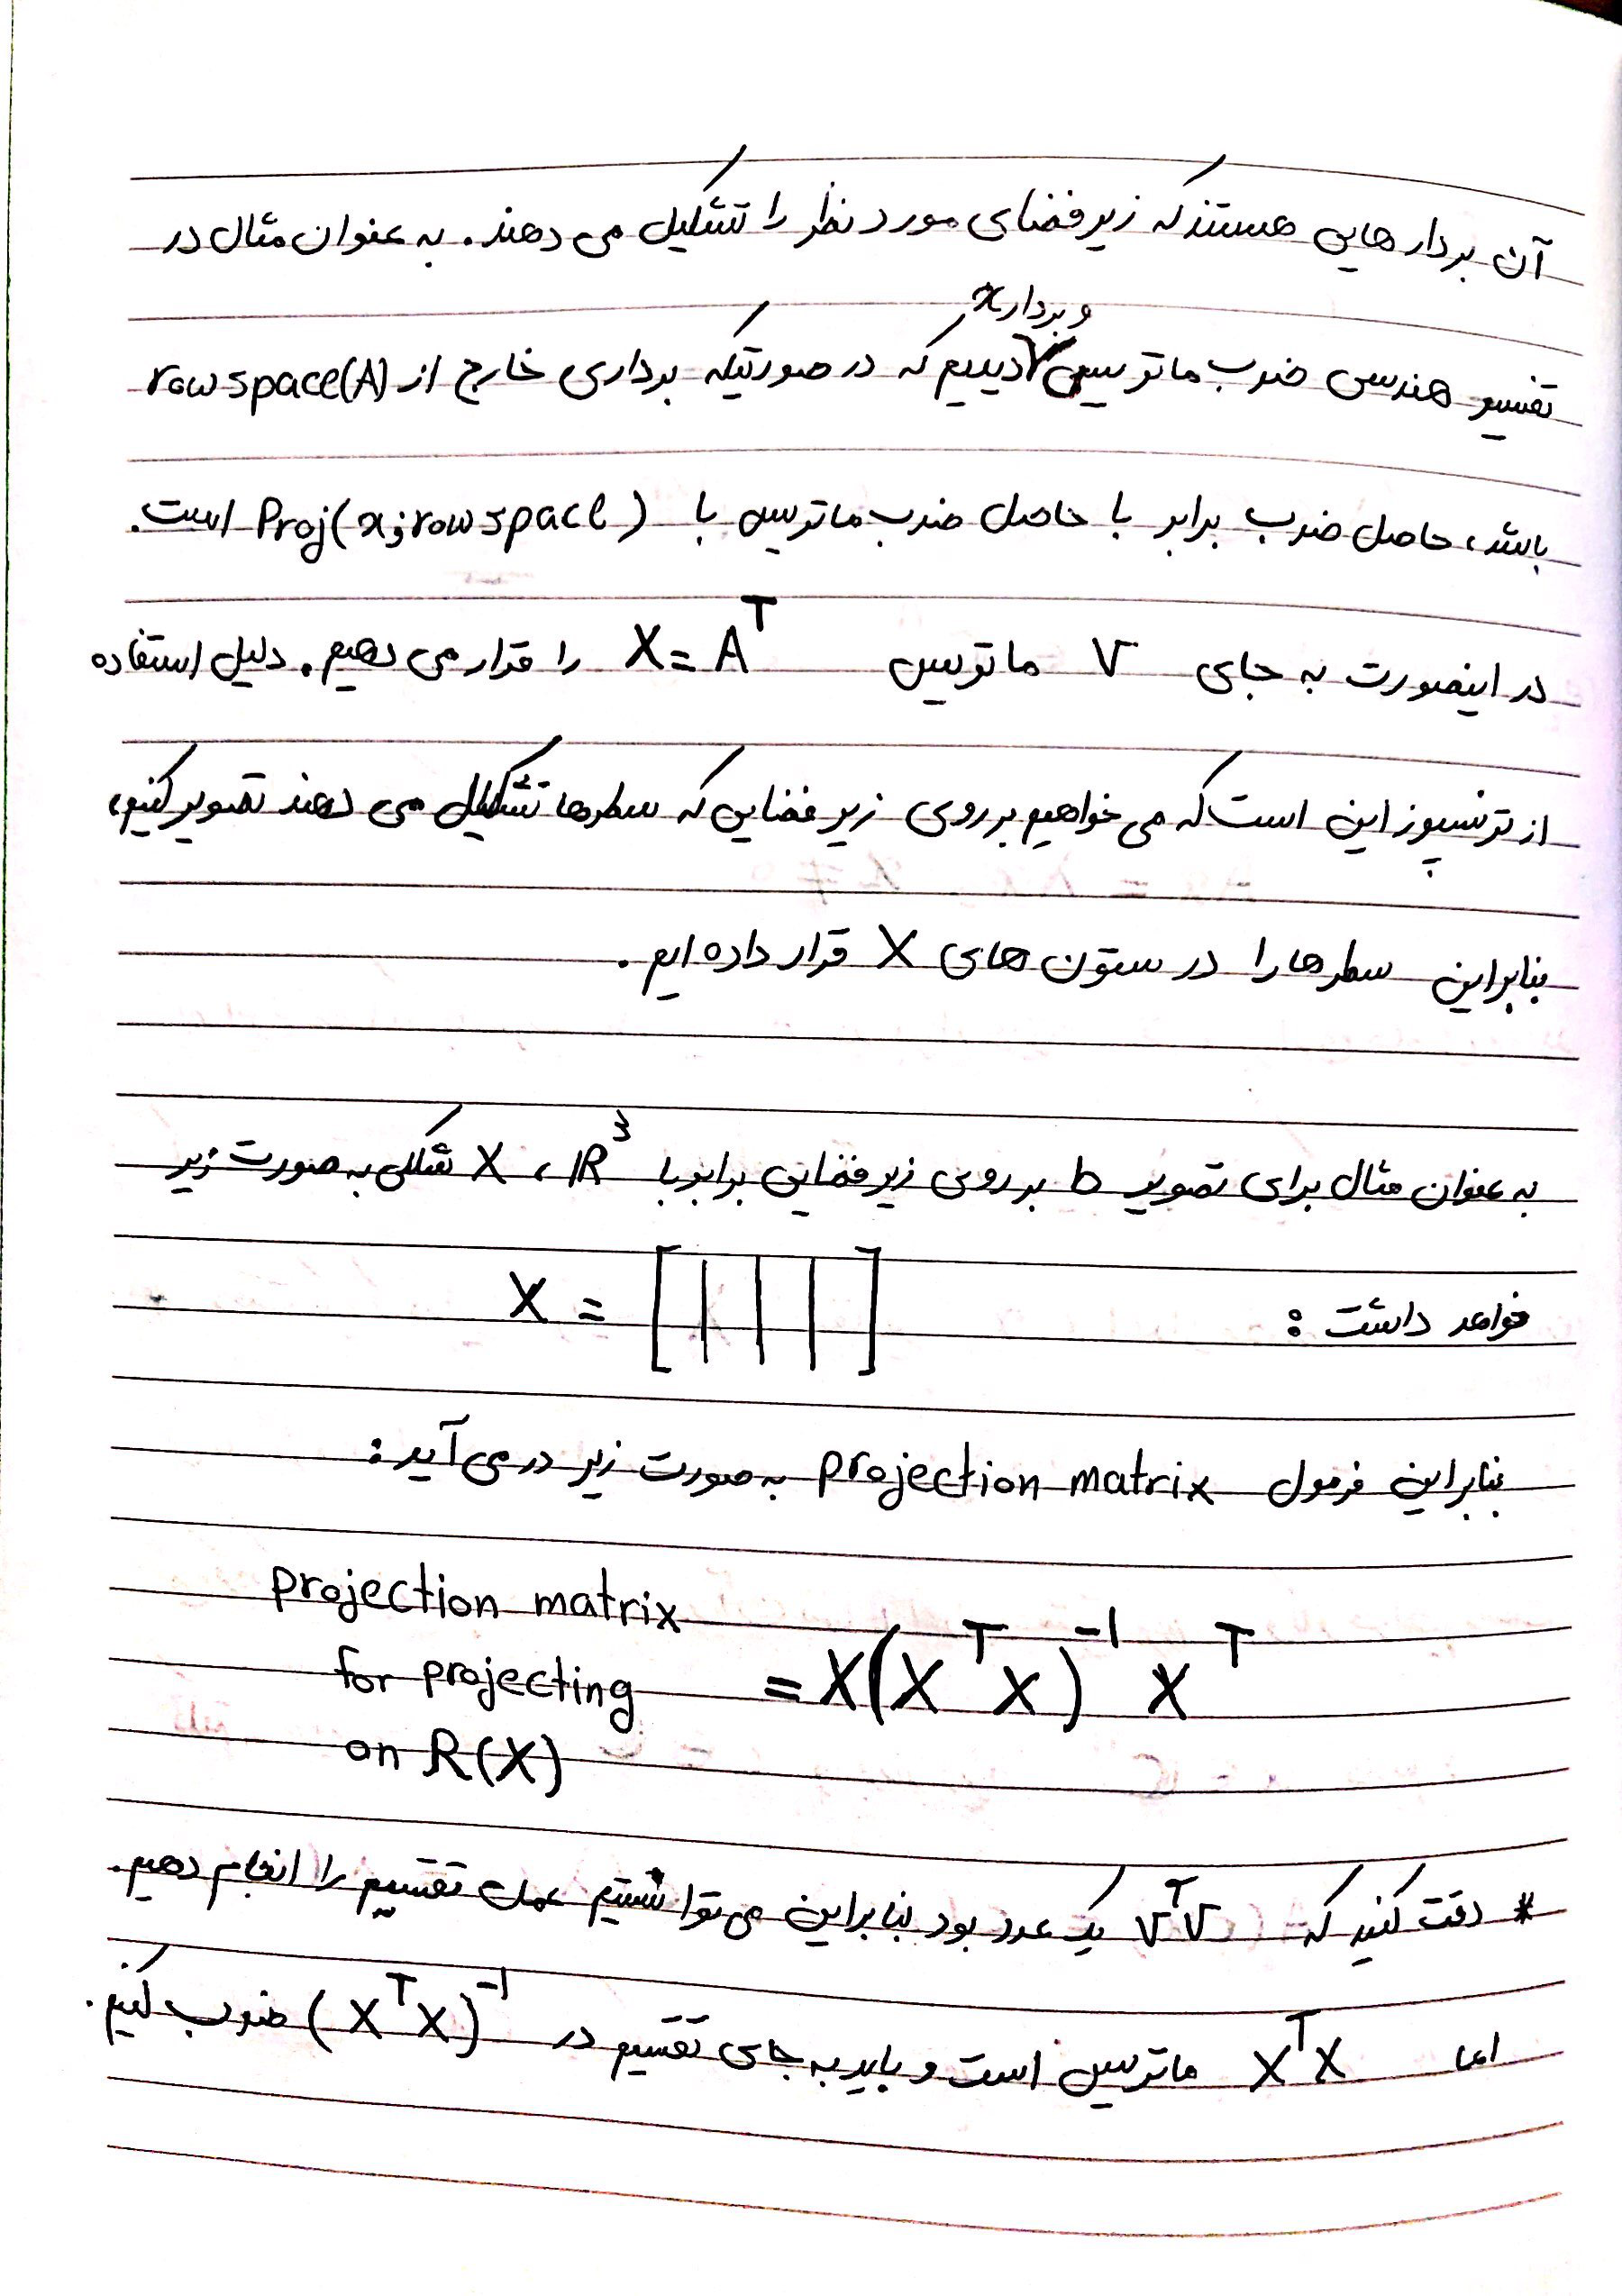 آن بردارهایی هستند که زیرفضای مورد نظر را تشکیل می دهند. به عنوان مثال در
و بردار x
تفسیر هندسی ضرب ماتریس دیدیم که در صورتیکه برداری خارج از row space(A)
باشد، حاصل ضرب برابر با حاصل ضرب ماتریس با Proj(x; row space) است.
در اینصورت به جای V ماتریس X = A^T را قرار می دهیم. دلیل استفاده
از ترنسپوز این است که می خواهیم بر روی زیرفضایی که سطرها تشکیل می دهند تصویر کنیم،
بنابراین سطرها را در ستون های X قرار داده ایم.
به عنوان مثال برای تصویر b بر روی زیرفضایی برابر با R^3 ، X شکلی به صورت زیر
خواهد داشت : X = [ | | | ]
بنابراین فرمول projection matrix به صورت زیر در می آید :
projection matrix
for projecting = X(X^T X)^-1 X^T
on R(X)
* دقت کنید که V^T V یک عدد بود بنابراین می توانستیم عمل تقسیم را انجام دهیم.
اما X^T X ماتریس است و باید به جای تقسیم در (X^T X)^-1 ضرب کنیم.